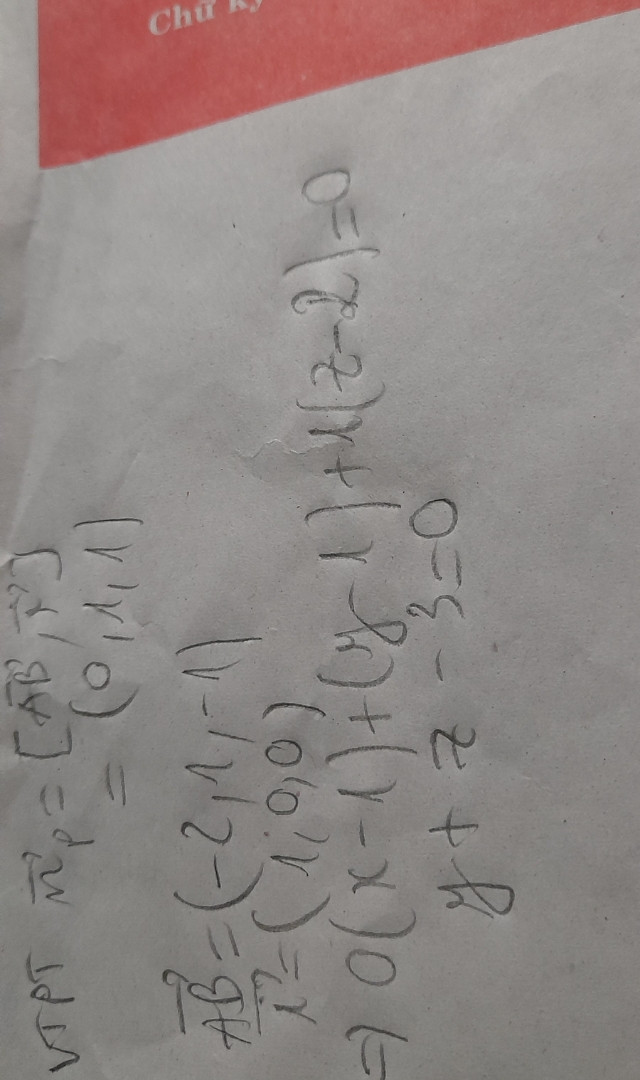 Chữ ký
VTPT n⃗p = [AB⃗, i⃗]
= (0,1,1)
AB⃗ = (-2,1,-1)
i⃗ = (1,0,0)
=> 0(x-1)+(y-1)+1(z-2)=0
y + z - 3=0